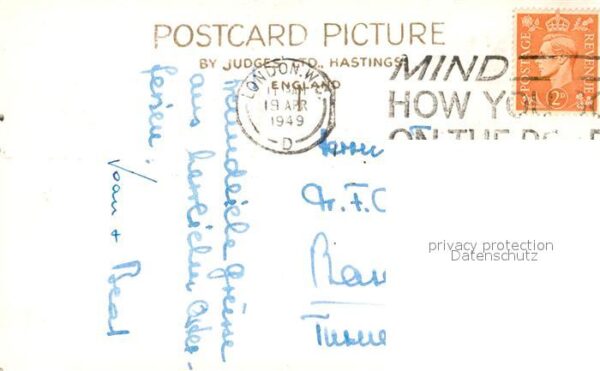 POSTCARD PICTURE
BY JUDGES LTD., HASTINGS
ENGLAND
LONDON. W.
19 APR
1949
D
MIND
HOW YOU
ON THE
POSTAGE
REVENUE
2D
Freundliche Grüsse
aus herrlichen Oster-
ferien!
Joan + Beat
Herrn
Dr. F. C
privacy protection
Datenschutz